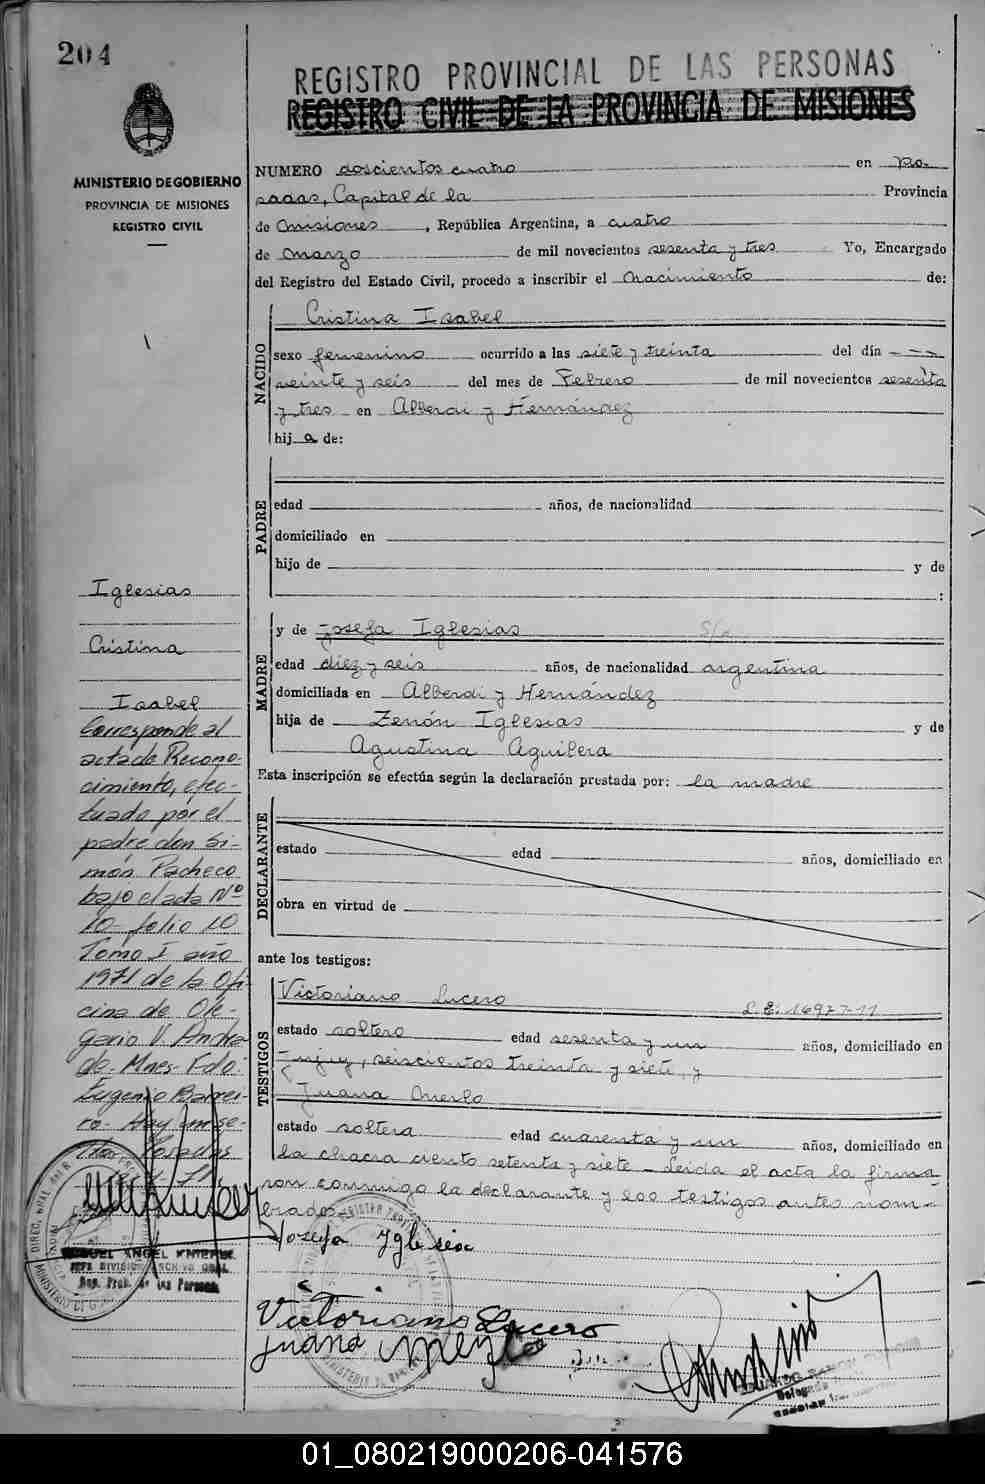 204
MINISTERIO DE GOBIERNO
PROVINCIA DE MISIONES
REGISTRO CIVIL
REGISTRO PROVINCIAL DE LAS PERSONAS
REGISTRO CIVIL DE LA PROVINCIA DE MISIONES
NUMERO doscientos cuatro en Po-
sadas, Capital de la Provincia
de Misiones, República Argentina, a cuatro
de Marzo de mil novecientos sesenta y tres Yo, Encargado
del Registro del Estado Civil, procedo a inscribir el Nacimiento de:
NACIDO
Cristina Isabel
sexo femenino ocurrido a las siete y treinta del día
veinte y seis del mes de Febrero de mil novecientos sesenta
y tres en Alberdi y Hernández
hija de:
PADRE
edad años, de nacionalidad
domiciliado en
hijo de y de
:
MADRE
y de Josefa Iglesias
edad diez y seis años, de nacionalidad argentina
domiciliada en Alberdi y Hernández
hija de Zenón Iglesias y de
Agustina Aguilera
Esta inscripción se efectúa según la declaración prestada por: la madre
DECLARANTE
estado edad años, domiciliado en
obra en virtud de
ante los testigos:
TESTIGOS
Victoriano Lucero
estado soltero edad sesenta y un años, domiciliado en
Jujuy, seiscientos treinta y siete, y
Juana Merlo
estado soltera edad cuarenta y un años, domiciliado en
la chacra ciento setenta y siete - Leida el acta la firma-
ron conmigo la declarante y los testigos antes nom-
brados
Josefa Iglesias
Victoriano Lucero
Juana Merlo
Iglesias
Cristina
Isabel
Corresponde al
acta de Recono-
cimiento, efec-
tuado por el
padre don Si-
món Pacheco
bajo el acta Nº
10- folio 10
Tomo I año
1971 de la Ofi
cina de Ole-
gario V. Andra
de- Mnes- Fdo:
Eugenio Barrei-
ro- Hay un se-
llo- Posadas
MIGUEL ANGEL
JEFE DIVISION ARCHIVO GRAL.
Reg. Prov. de las Personas
01_080219000206-041576